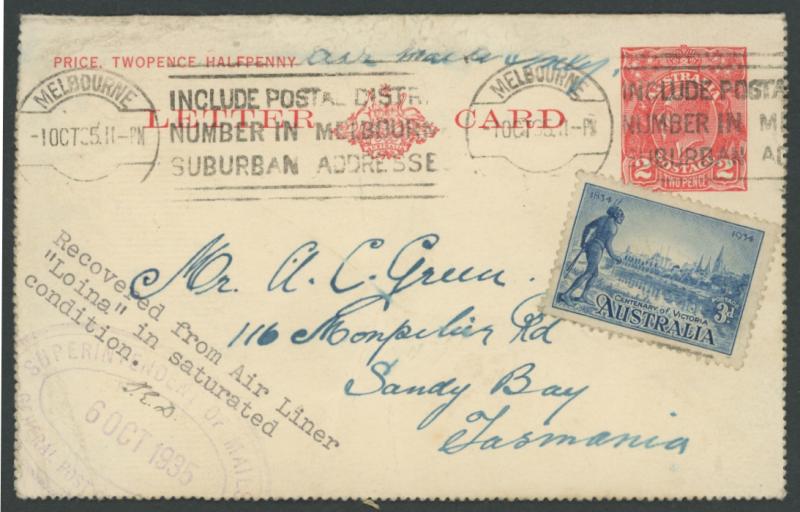 PRICE, TWOPENCE HALFPENNY Air Mail only.
MELBOURNE
-1 OCT 35. 11-PM
INCLUDE POSTAL DISTR
NUMBER IN MELBOURN
SUBURBAN ADDRESSE
LETTER CARD
MELBOURNE
1 OCT 35. 11-PM
INCLUDE POSTA
NUMBER IN M
SUBURBAN AD
AUSTRALIA
POSTAGE
2 2
TWO PENCE
1834 1934
CENTENARY OF VICTORIA
POSTAGE
AUSTRALIA 3d
Mr. A. C. Green.
116 Monpelier Rd
Sandy Bay
Tasmania
Recovered from Air Liner
"Loina" in saturated
condition.
SUPERINTENDENT OF MAILS
6 OCT 1935
GENERAL POST